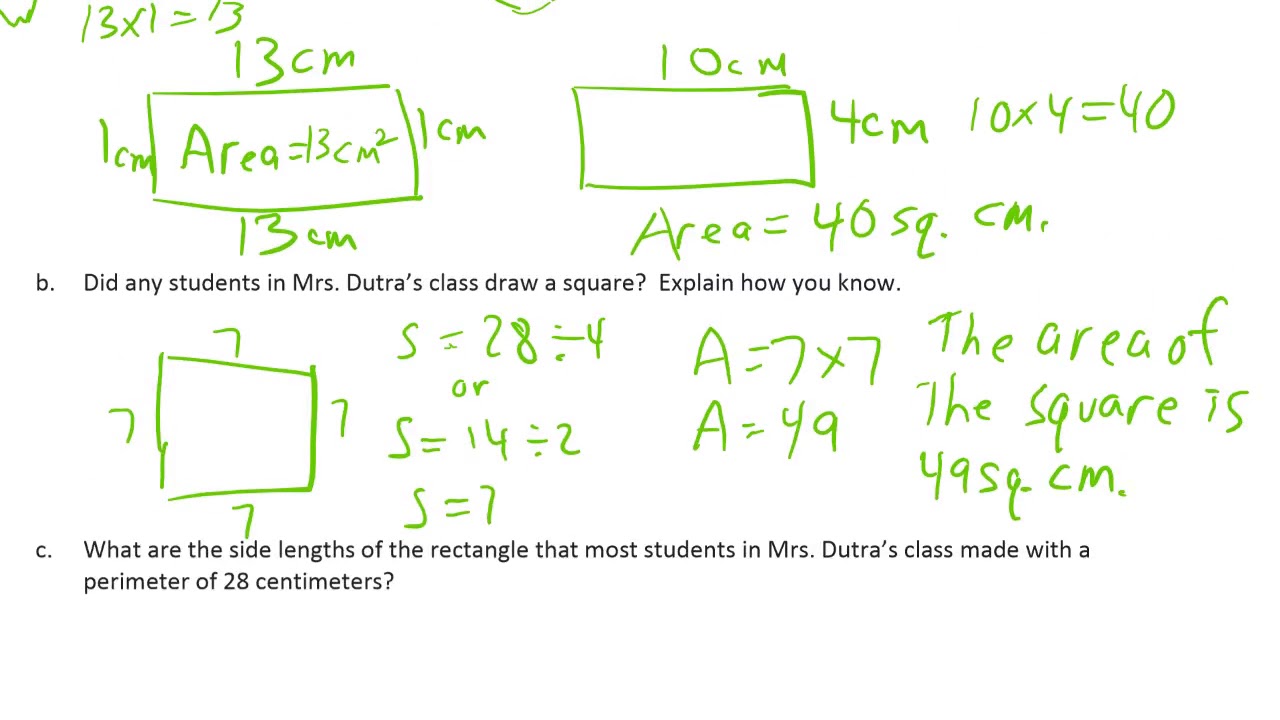 13x1=13
13cm
10cm
1cm Area=13cm² 1cm
4cm 10x4=40
13cm
Area= 40 sq. cm.
b. Did any students in Mrs. Dutra's class draw a square? Explain how you know.
7
7
7
7
S = 28÷4
or
S= 14÷2
S=7
A=7x7
A=49
The area of
The square is
49sq. cm.
c. What are the side lengths of the rectangle that most students in Mrs. Dutra's class made with a
perimeter of 28 centimeters?